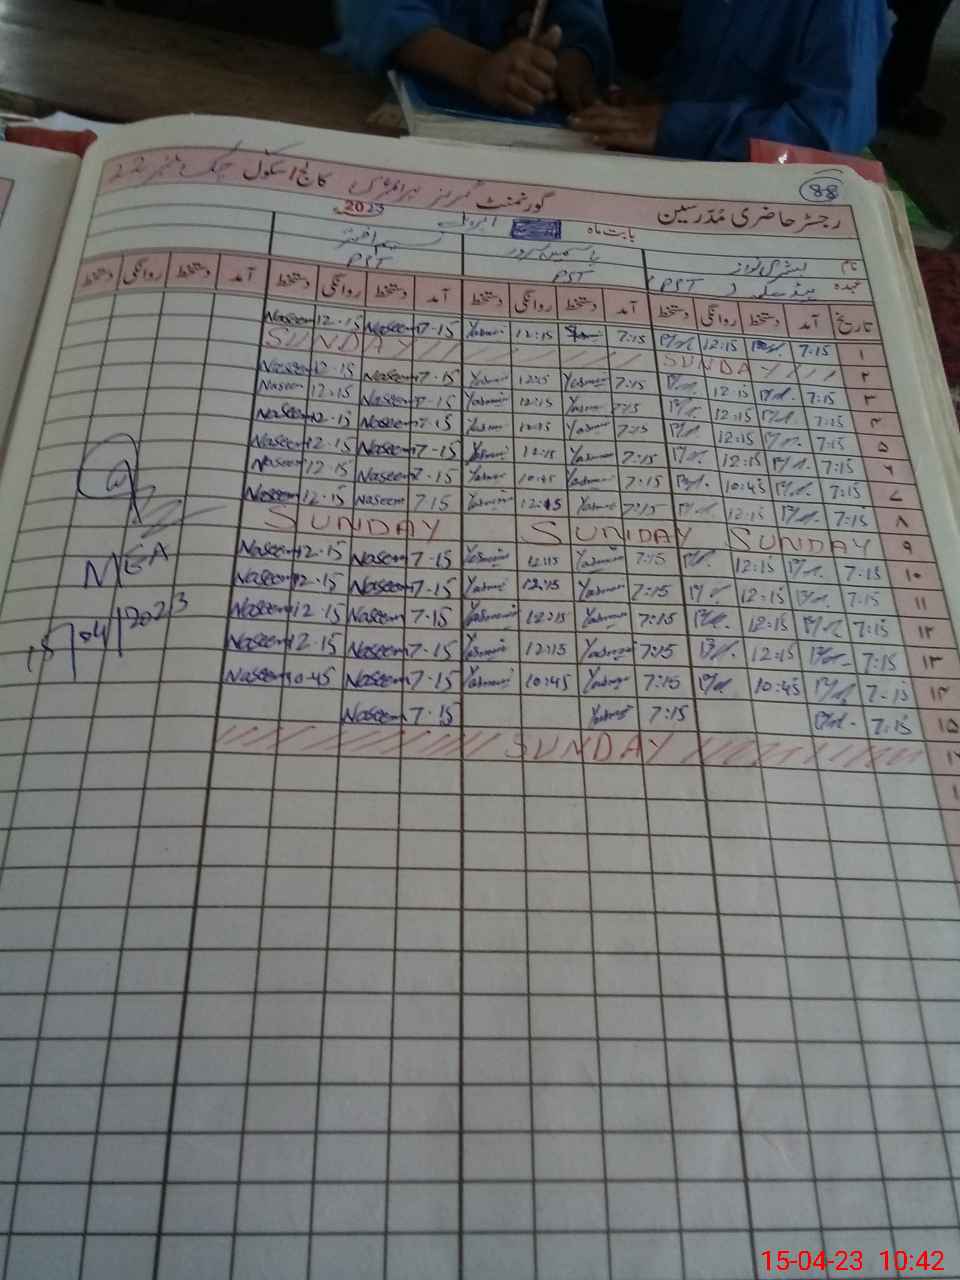 88
رجسٹر حاضری مدرسین گورنمنٹ گرلز پرائمری کالج/سکول چک نمبر 22
بابت ماہ اپریل 2023
نام بشریٰ نواز یاسمین سرور نسیم اختر
عہدہ PST PST PST
تاریخ آمد دستخط روانگی دستخط آمد دستخط روانگی دستخط آمد دستخط روانگی دستخط آمد دستخط روانگی دستخط
۱ 7:15 12:15 7:15 12:15 Yasmin 7-15 Naseem 12-15 Naseem
۲ SUNDAY SUNDAY
۳ 7:15 12:15 7:15 Yasmin 12:15 Yasmin 7-15 Naseem 12-15 Naseem
۴ 7:15 12:15 7:15 Yasmin 12:15 Yasmin 7-15 Naseem 12-15 Naseem
۵ 7:15 12:15 7:15 Yasmin 12:15 Yasmin 7-15 Naseem 12-15 Naseem
۶ 7:15 12:15 7:15 Yasmin 12:15 Yasmin 7-15 Naseem 12-15 Naseem
۷ 7:15 10:45 7:15 Yasmin 10:45 Yasmin 7-15 Naseem 12-15 Naseem
۸ 7:15 12:15 7:15 Yasmin 12:45 Yasmin 7-15 Naseem 12-15 Naseem
۹ SUNDAY SUNDAY SUNDAY
۱۰ 7:15 12:15 7:15 Yasmin 12:15 Yasmin 7-15 Naseem 12-15 Naseem
۱۱ 7:15 12:15 7:15 Yasmin 12:15 Yasmin 7-15 Naseem 12-15 Naseem
۱۲ 7:15 12:15 7:15 Yasmin 12:15 Yasmin 7-15 Naseem 12-15 Naseem
۱۳ 7:15 12:15 7:15 Yasmin 12:15 Yasmin 7-15 Naseem 12-15 Naseem
۱۴ 7:15 10:45 7:15 Yasmin 10:45 Yasmin 7-15 Naseem 10-45 Naseem
۱۵ 7:15 7:15 Yasmin 7-15 Naseem
SUNDAY
MEA
15/04/2023
15-04-23 10:42